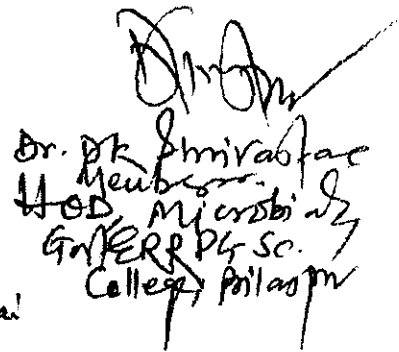 Dr. DK Shrivastav
Member
HOD, Microbiology
Govt ERR PG Sc.
College, Bilaspur